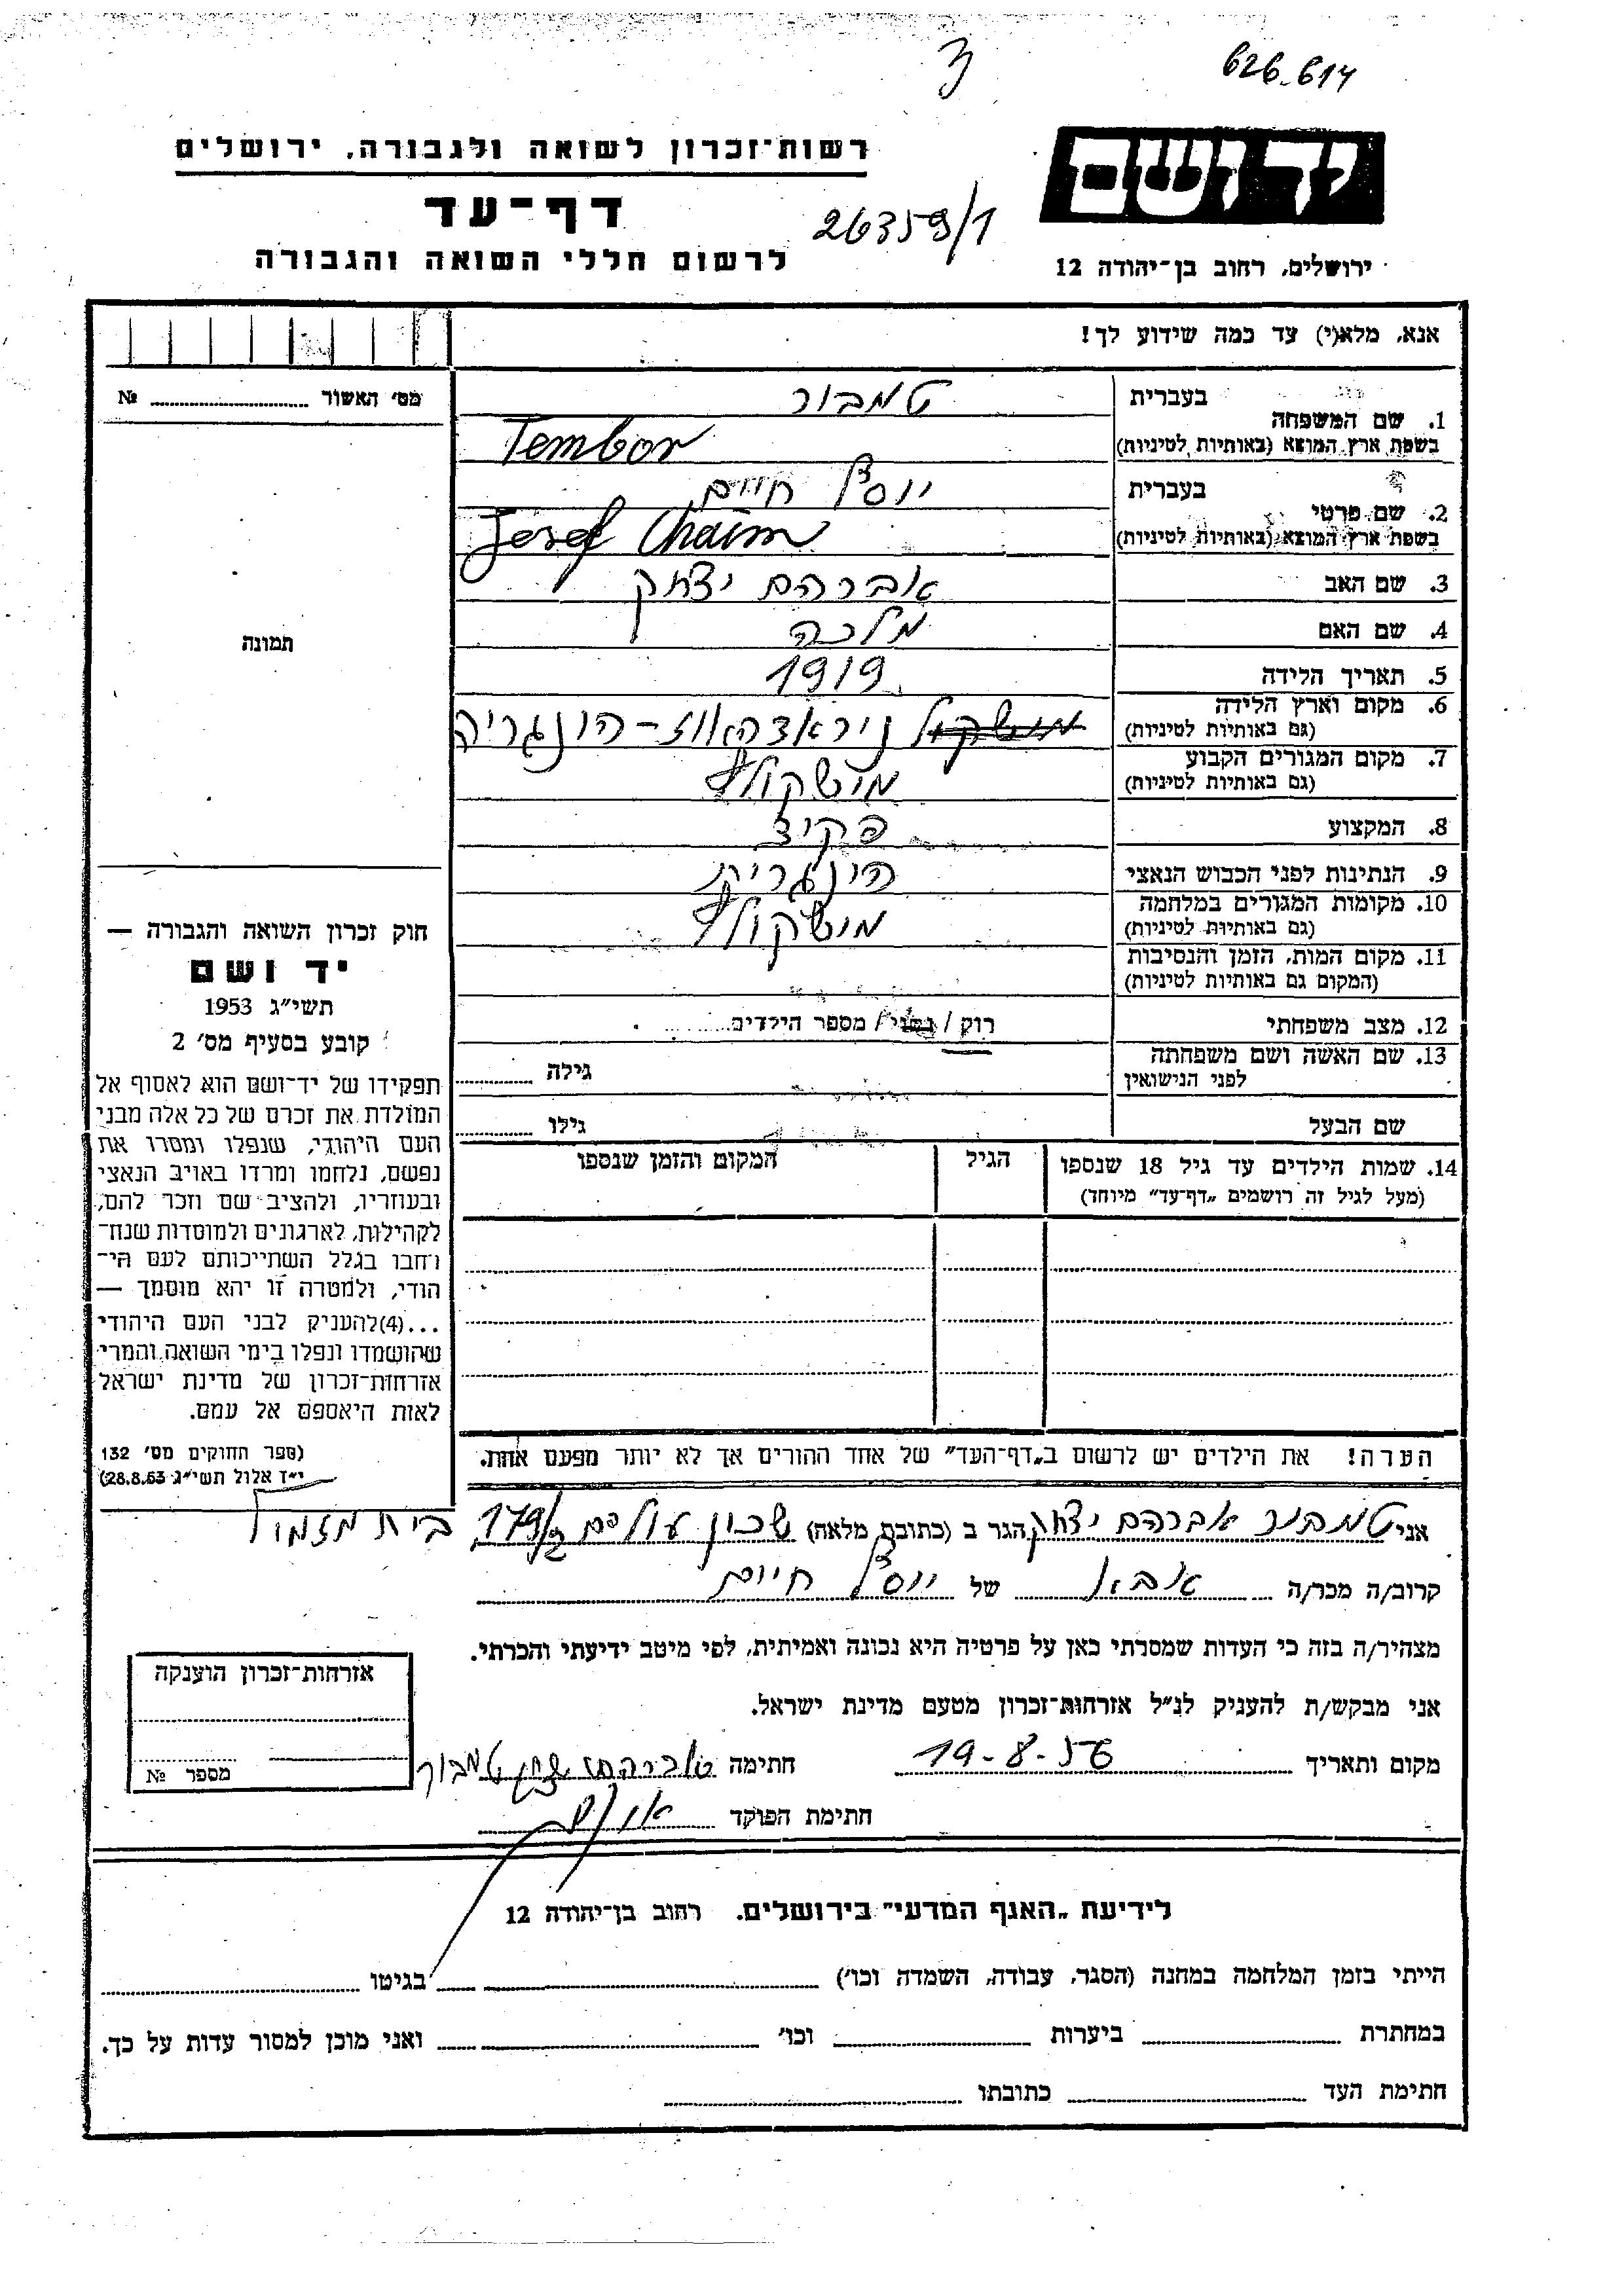 626-614
יד ושם
רשות־זכרון לשואה ולגבורה, ירושלים
דף־עד
26359/1
לרשום חללי השואה והגבורה
ירושלים, רחוב בן־יהודה 12
אנא, מלא(י) עד כמה שידוע לך!
מס׳ האשור № ........
1. שם המשפחה
בעברית
טמבור
בשפת ארץ המוצא (באותיות לטיניות)
Tembor
2. שם פרטי
בעברית
יוסף חיים
בשפת ארץ המוצא (באותיות לטיניות)
Josef Chaim
3. שם האב
אברהם יצחק
4. שם האם
מלכה
5. תאריך הלידה
1919
6. מקום וארץ הלידה
(גם באותיות לטיניות)
הונגריה
7. מקום המגורים הקבוע
(גם באותיות לטיניות)
מישקולץ
8. המקצוע
פקיד
9. הנתינות לפני הכבוש הנאצי
הונגרית
10. מקומות המגורים במלחמה
(גם באותיות לטיניות)
מישקולץ
11. מקום המות, הזמן והנסיבות
(המקום גם באותיות לטיניות)
12. מצב משפחתי
רוק / נשוי / מספר הילדים........
13. שם האשה ושם משפחתה
לפני הנישואין
גילה ........
שם הבעל
גילו ........
14. שמות הילדים עד גיל 18 שנספו
(מעל לגיל זה רושמים „דף־עד״ מיוחד)
הגיל
המקום והזמן שנספו
הערה! את הילדים יש לרשום ב„דף־העד״ של אחד ההורים אך לא יותר מפעם אחת.
תמונה
חוק זכרון השואה והגבורה —
יד ושם
תשי״ג 1953
קובע בסעיף מס׳ 2
תפקידו של יד־ושם הוא לאסוף אל
המולדת את זכרם של כל אלה מבני
העם היהודי, שנפלו ומסרו את
נפשם, נלחמו ומרדו באויב הנאצי
ובעוזריו, ולהציב שם וזכר להם,
לקהילות, לארגונים ולמוסדות שנח־
רחבו בגלל השתייכותם לעם הי־
הודי, ולמטרה זו יהא מוסמך —
...(4)להעניק לבני העם היהודי
שהושמדו ונפלו בימי השואה והמרי
אזרחות־זכרון של מדינת ישראל
לאות היאספם אל עמם.
(ספר החוקים מס׳ 132
י״ז אלול תשי״ג 28.8.53)
אני טמבור אברהם יצחק הגר ב (כתובת מלאה) שכון עולים 179/ בית מזמיל
קרוב/ה מכר/ה אבא של יוסף חיים
מצהיר/ה בזה כי העדות שמסרתי כאן על פרטיה היא נכונה ואמיתית, לפי מיטב ידיעתי והכרתי.
אני מבקש/ת להעניק לנ״ל אזרחות־זכרון מטעם מדינת ישראל.
מקום ותאריך 19-8-56 חתימה אברהם יצחק טמבור
חתימת הפוקד
אזרחות־זכרון הוענקה
מספר №
לידיעת „האגף המדעי״ בירושלים. רחוב בן־יהודה 12
הייתי בזמן המלחמה במחנה (הסגר, עבודה, השמדה וכו׳) ........ בגיטו ........
במחתרת ........ ביערות ........ וכו׳ ........ ואני מוכן למסור עדות על כך.
חתימת העד ........ כתובתו ........